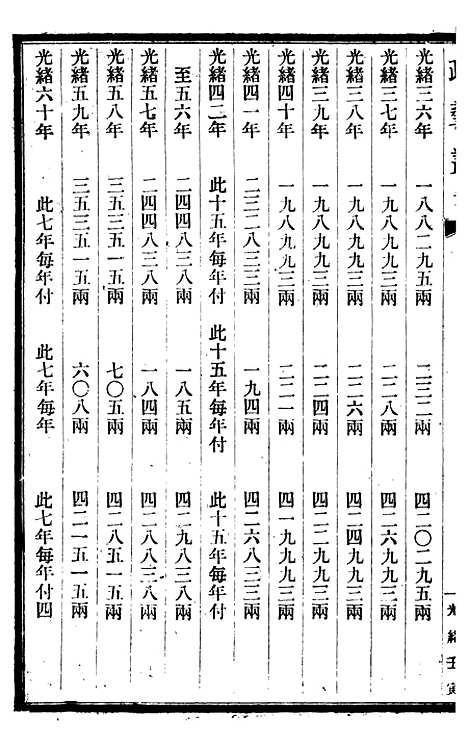 光緒壬寅
光緒三六年 一八八二九五兩 二三二兩 四二〇二九五兩
光緒三七年 一九八九九三兩 二二八兩 四二六九九三兩
光緒三八年 一九八九九三兩 二二六兩 四二四九九三兩
光緒三九年 一九八九九三兩 二二四兩 四二二九九三兩
光緒四十年 一九八九九三兩 二二一兩 四一九九九三兩
光緒四一年 二三二八三三兩 一九四兩 四二六八三三兩
光緒四二年 此十五年每年付 此十五年每年付 此十五年每年付
至五六年 二四四八三八兩 一八五兩 四二九八三八兩
光緒五七年 二四四八三八兩 一八四兩 四二八八三八兩
光緒五八年 三五三五一五兩 七〇五兩 四二八五一五兩
光緒五九年 三五三五一五兩 六〇八兩 四二一五一五兩
光緒六十年 此七年每年付 此七年每年 此七年每年付四